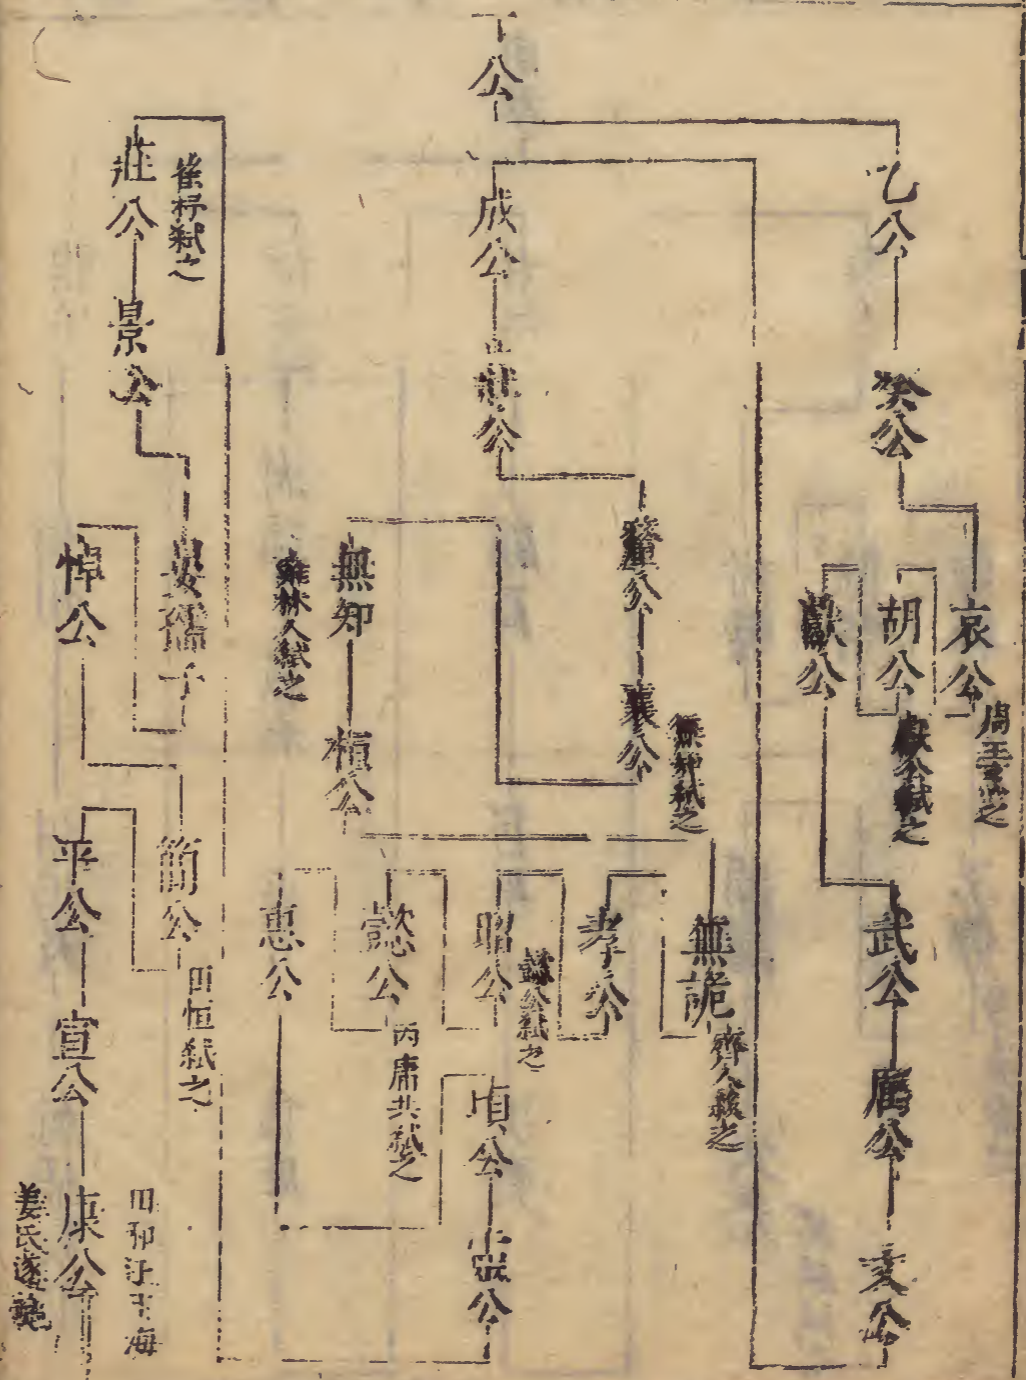 丁公
乙公
癸公
哀公
周王烹之
胡公
獻公弑之
獻公
武公
厲公
文公
成公
莊公
釐公
襄公
無知弑之
無知
雍林人弑之
桓公
無詭
齊人殺之
孝公
昭公
懿公弑之
懿公
丙庸共弑之
惠公
頃公
靈公
莊公
崔杼弑之
景公
晏孺子
悼公
簡公
田恒弑之
平公
宣公
康公
田和迁于海
姜氏遂絶